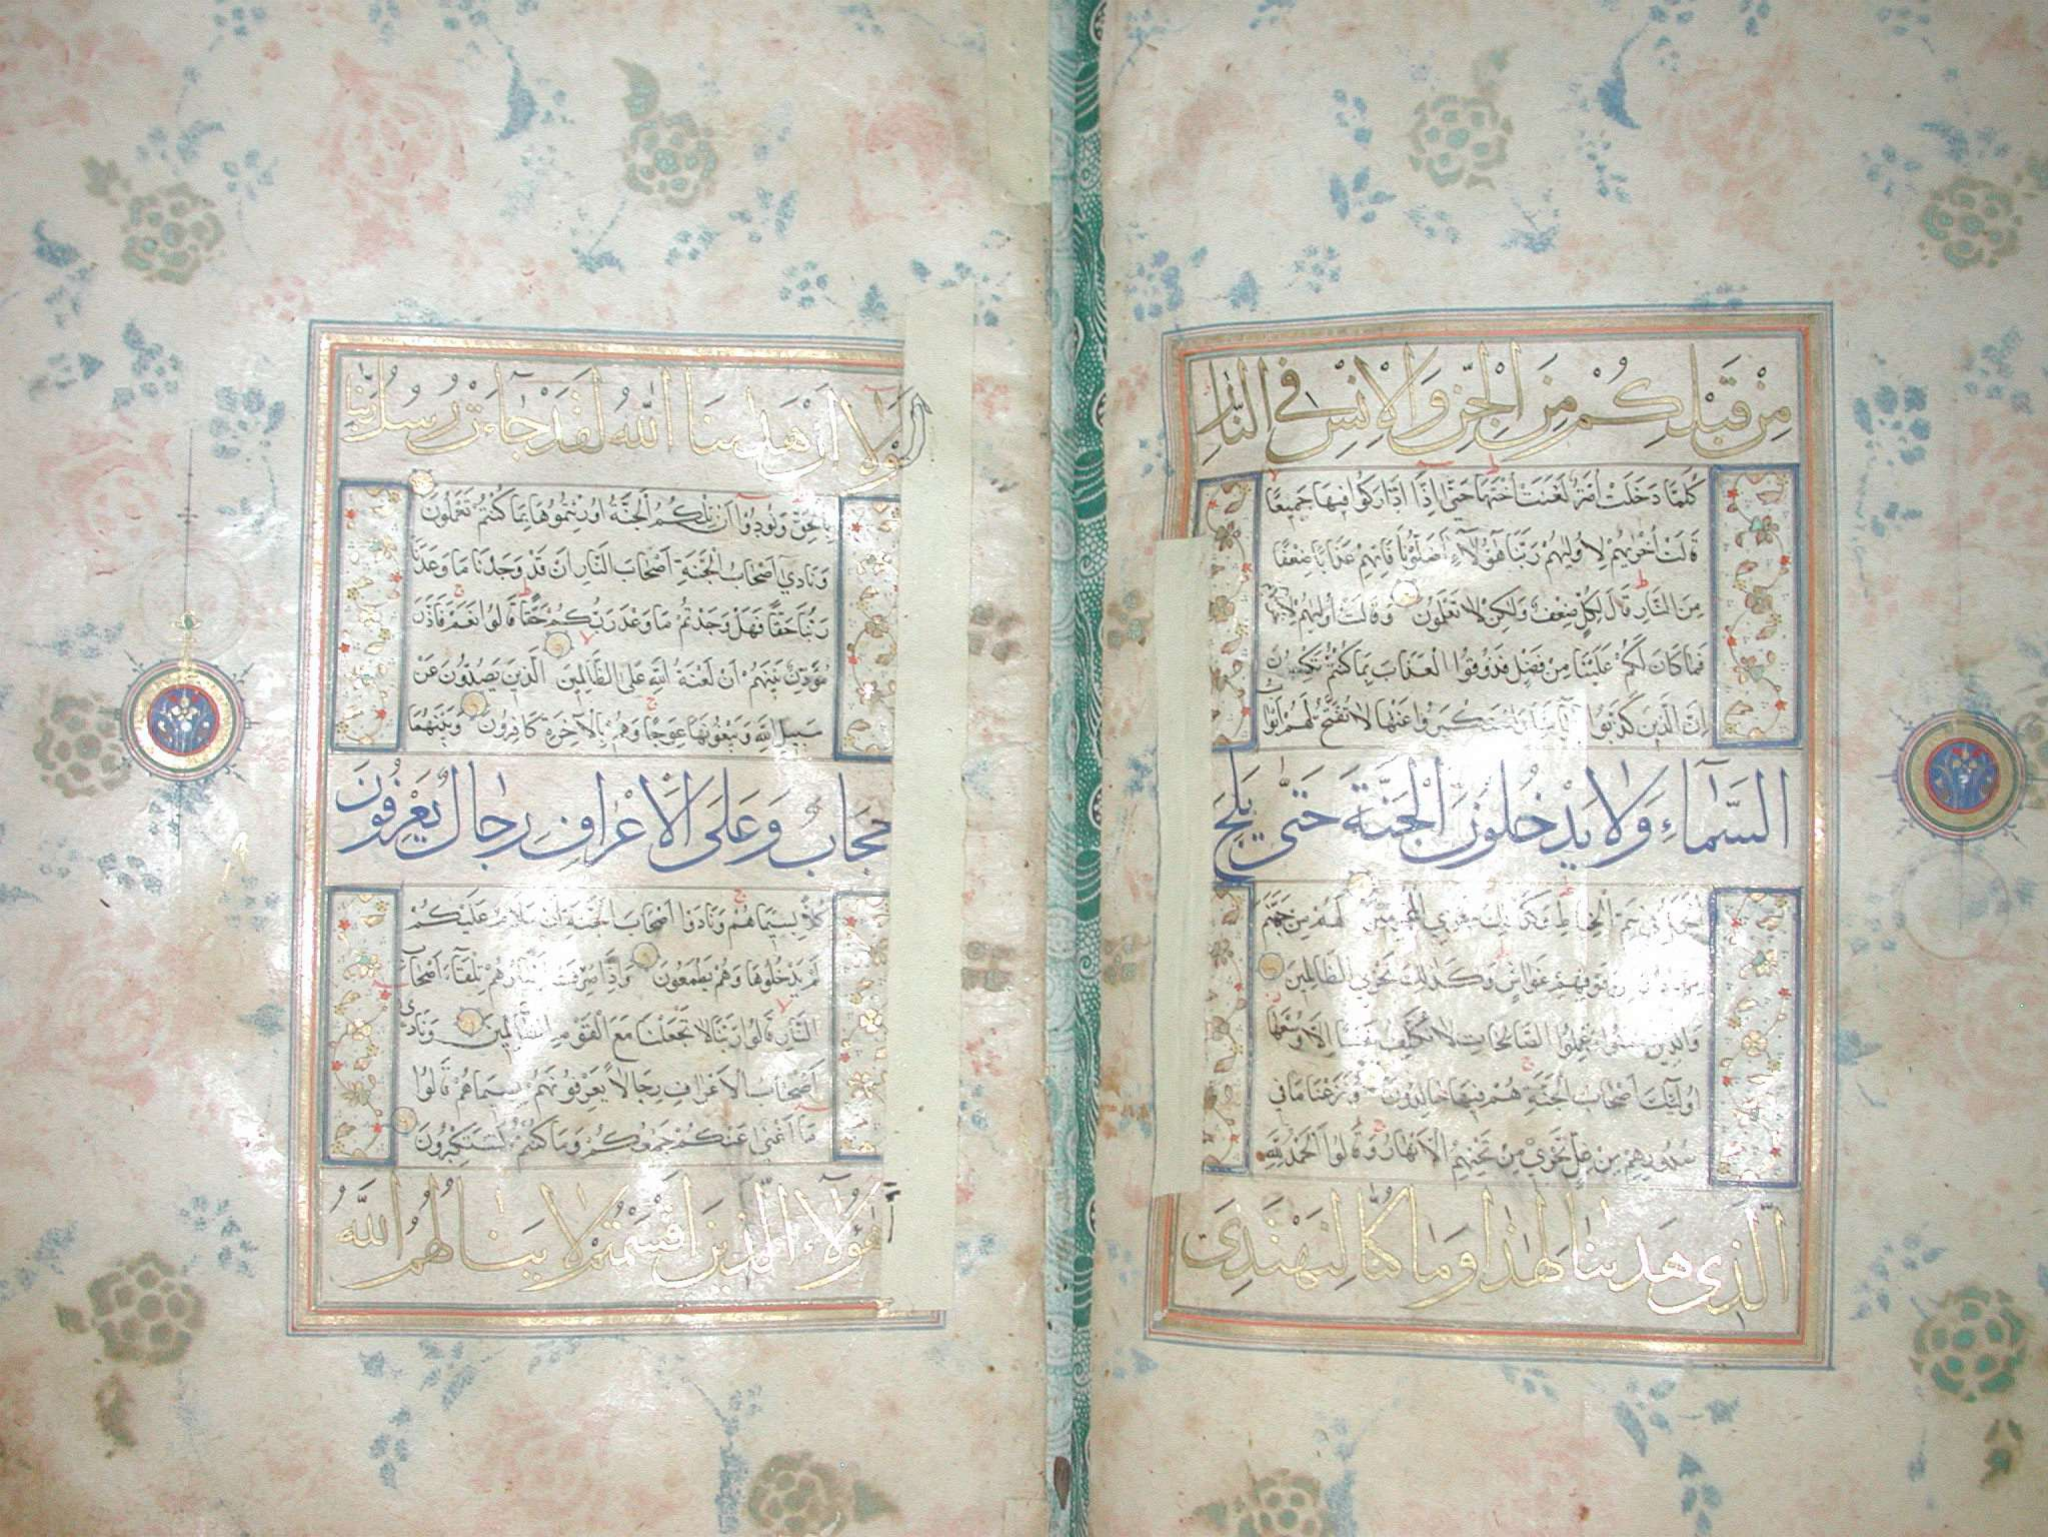 مِنْ قَبْلِكُمْ مِنَ الْجِنِّ وَالْاِنْسِ فِي النَّارِ
كُلَّمَا دَخَلَتْ اُمَّةٌ لَعَنَتْ اُخْتَهَا حَتَّى اِذَا ادَّارَكُوا فِيهَا جَمِيعًا
قَالَتْ اُخْرٰيهُمْ لِاُولٰيهُمْ رَبَّنَا هٰؤُلَاءِ اَضَلُّونَا فَاٰتِهِمْ عَذَابًا ضِعْفًا
مِنَ النَّارِ قَالَ لِكُلٍّ ضِعْفٌ وَلٰكِنْ لَا تَعْلَمُونَ وَقَالَتْ اُولٰيهُمْ لِاُخْرٰيهُمْ
فَمَا كَانَ لَكُمْ عَلَيْنَا مِنْ فَضْلٍ فَذُوقُوا الْعَذَابَ بِمَا كُنْتُمْ تَكْسِبُونَ
اِنَّ الَّذِينَ كَذَّبُوا بِاٰيَاتِنَا وَاسْتَكْبَرُوا عَنْهَا لَا تُفَتَّحُ لَهُمْ اَبْوَابُ
السَّمَاءِ وَلَا يَدْخُلُونَ الْجَنَّةَ حَتّٰى يَلِجَ
الْجَمَلُ فِي سَمِّ الْخِيَاطِ وَكَذٰلِكَ نَجْزِي الْمُجْرِمِينَ لَهُمْ مِنْ جَهَنَّمَ
مِهَادٌ وَمِنْ فَوْقِهِمْ غَوَاشٍ وَكَذٰلِكَ نَجْزِي الظَّالِمِينَ
وَالَّذِينَ اٰمَنُوا وَعَمِلُوا الصَّالِحَاتِ لَا نُكَلِّفُ نَفْسًا اِلَّا وُسْعَهَا
اُولٰئِكَ اَصْحَابُ الْجَنَّةِ هُمْ فِيهَا خَالِدُونَ وَنَزَعْنَا مَا فِي
صُدُورِهِمْ مِنْ غِلٍّ تَجْرِي مِنْ تَحْتِهِمُ الْاَنْهَارُ وَقَالُوا الْحَمْدُ لِلّٰهِ
الَّذِي هَدٰينَا لِهٰذَا وَمَا كُنَّا لِنَهْتَدِيَ
لَوْلَا اَنْ هَدٰينَا اللّٰهُ لَقَدْ جَاءَتْ رُسُلُ رَبِّنَا
بِالْحَقِّ وَنُودُوا اَنْ تِلْكُمُ الْجَنَّةُ اُورِثْتُمُوهَا بِمَا كُنْتُمْ تَعْمَلُونَ
وَنَادٰى اَصْحَابُ الْجَنَّةِ اَصْحَابَ النَّارِ اَنْ قَدْ وَجَدْنَا مَا وَعَدَنَا
رَبُّنَا حَقًّا فَهَلْ وَجَدْتُمْ مَا وَعَدَ رَبُّكُمْ حَقًّا قَالُوا نَعَمْ فَاَذَّنَ
مُؤَذِّنٌ بَيْنَهُمْ اَنْ لَعْنَةُ اللّٰهِ عَلَى الظَّالِمِينَ الَّذِينَ يَصُدُّونَ عَنْ
سَبِيلِ اللّٰهِ وَيَبْغُونَهَا عِوَجًا وَهُمْ بِالْاٰخِرَةِ كَافِرُونَ وَبَيْنَهُمَا
حِجَابٌ وَعَلَى الْاَعْرَافِ رِجَالٌ يَعْرِفُونَ
كُلًّا بِسِيمَاهُمْ وَنَادَوْا اَصْحَابَ الْجَنَّةِ اَنْ سَلَامٌ عَلَيْكُمْ
لَمْ يَدْخُلُوهَا وَهُمْ يَطْمَعُونَ وَاِذَا صُرِفَتْ اَبْصَارُهُمْ تِلْقَاءَ اَصْحَابِ
النَّارِ قَالُوا رَبَّنَا لَا تَجْعَلْنَا مَعَ الْقَوْمِ الظَّالِمِينَ وَنَادٰى
اَصْحَابُ الْاَعْرَافِ رِجَالًا يَعْرِفُونَهُمْ بِسِيمَاهُمْ قَالُوا
مَا اَغْنٰى عَنْكُمْ جَمْعُكُمْ وَمَا كُنْتُمْ تَسْتَكْبِرُونَ
اَهٰؤُلَاءِ الَّذِينَ اَقْسَمْتُمْ لَا يَنَالُهُمُ اللّٰهُ